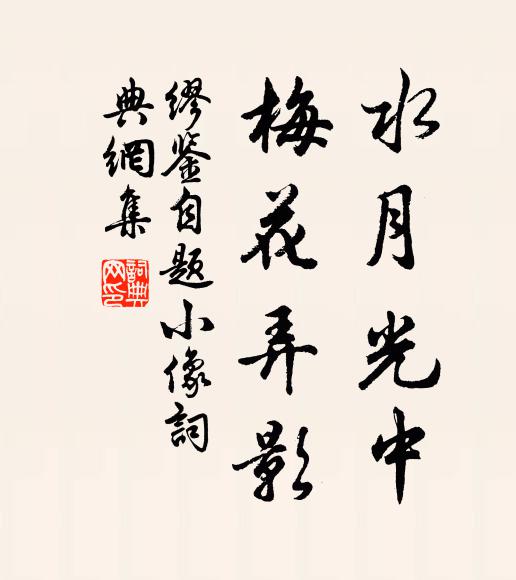 水月光中
梅花弄影
繆鉴自题小像詞
典網集
詞典网印